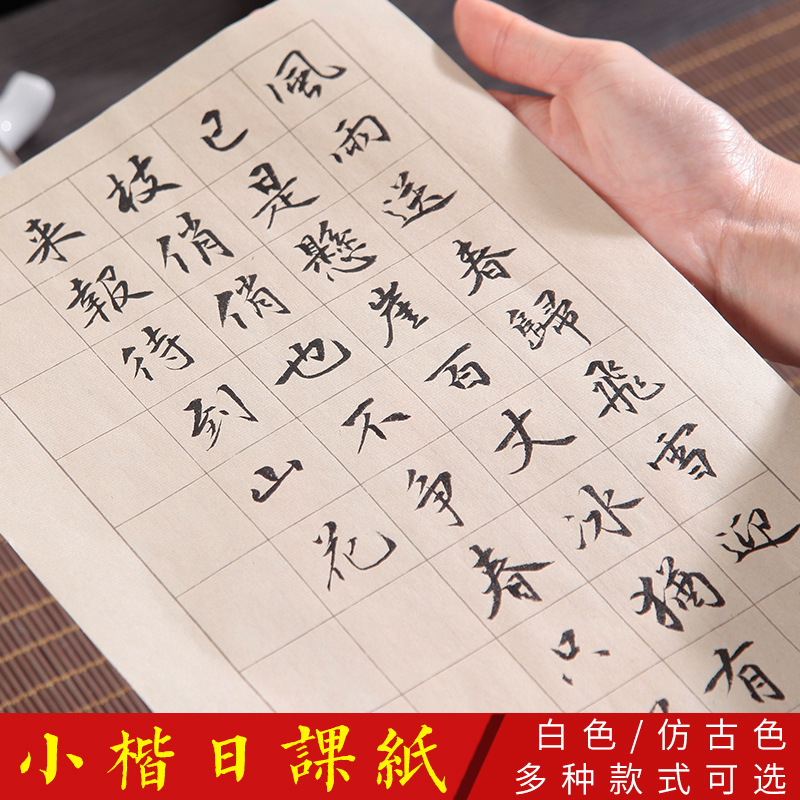 風雨送春歸飛雪迎
已是懸崖百丈冰猶有
枝俏俏也不争春只
来報待到山花
小楷日課紙
白色/仿古色
多种款式可选